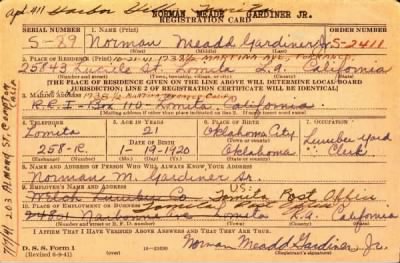 NORMAN MEADE GARDINER JR.
REGISTRATION CARD
SERIAL NUMBER 1. NAME (Print) ORDER NUMBER
S-89 Norman Meadd Gardiner Jr. S-2411
10-21-41 1738½ MARTINA AVE, TORRANCE
2. PLACE OF RESIDENCE (Print)
25843 St. Lomita L.A. California
[THE PLACE OF RESIDENCE GIVEN ON THE LINE ABOVE WILL DETERMINE LOCAL BOARD
JURISDICTION; LINE 2 OF REGISTRATION CERTIFICATE WILL BE IDENTICAL]
3. MAILING ADDRESS
R.F.D.1-Box 110-Lomita, California
[Mailing address if other than place indicated on line 2. If same, insert word same]
4. TELEPHONE 5. AGE IN YEARS 6. PLACE OF BIRTH 7. OCCUPATION
Lomita 21 Oklahoma City Lumber yard
DATE OF BIRTH
258-R 1-19-1920 Oklahoma Clerk
(Exchange) (Number) (Mo.) (Day) (Yr.) (State or country)
8. NAME AND ADDRESS OF PERSON WHO WILL ALWAYS KNOW YOUR ADDRESS
Norman M. Gardiner Sr.
9. EMPLOYER'S NAME AND ADDRESS U.S.
Welch Lumber Co Lomita Post Office
10. PLACE OF EMPLOYMENT OR BUSINESS Lomita Post Office
Narbonne Ave Lomita L.A. California
I AFFIRM THAT I HAVE VERIFIED ABOVE ANSWERS AND THAT THEY ARE TRUE.
D. S. S. Form 1
(Revised 6-9-41) Norman Meadd Gardiner, Jr.
7/7/41 203 Almond St. Compton
Calif.